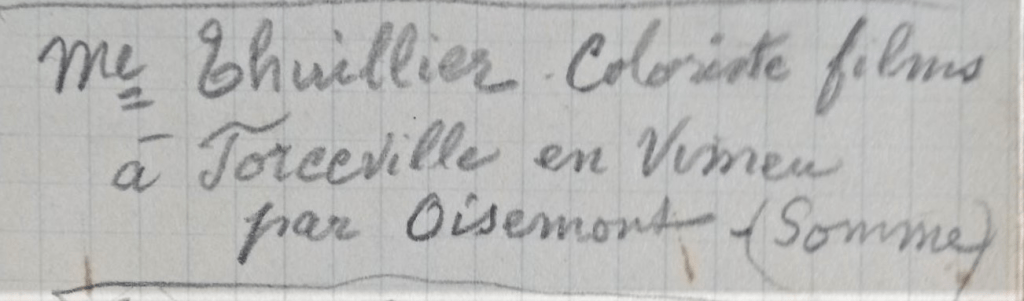 Me Thuillier. Coloriste films
à Forceville en Vimeu
par Oisemont (Somme)